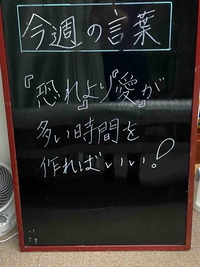 今週の言葉
『恐れ』より『愛』が
多い時間を
作ればいい!